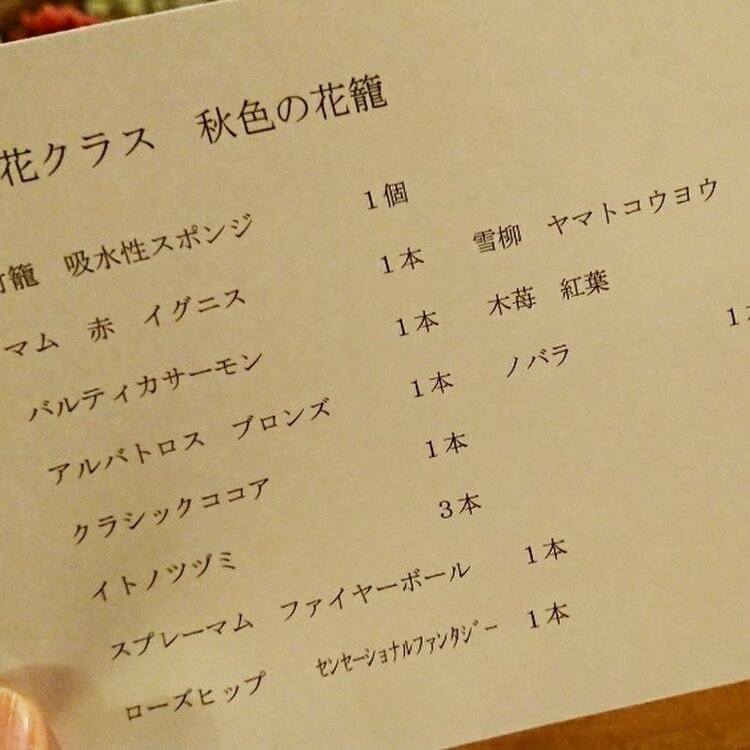 花クラス 秋色の花籠
籠 吸水性スポンジ 1個
マム 赤 イグニス 1本 雪柳 ヤマトコウヨウ
バルティカサーモン 1本 木苺 紅葉
アルバトロス ブロンズ 1本 ノバラ 1
クラシックココア 1本
イトノツヅミ 3本
スプレーマム ファイヤーボール 1本
ローズヒップ ｾﾝｾｰｼｮﾅﾙﾌｧﾝﾀｼﾞｰ 1本